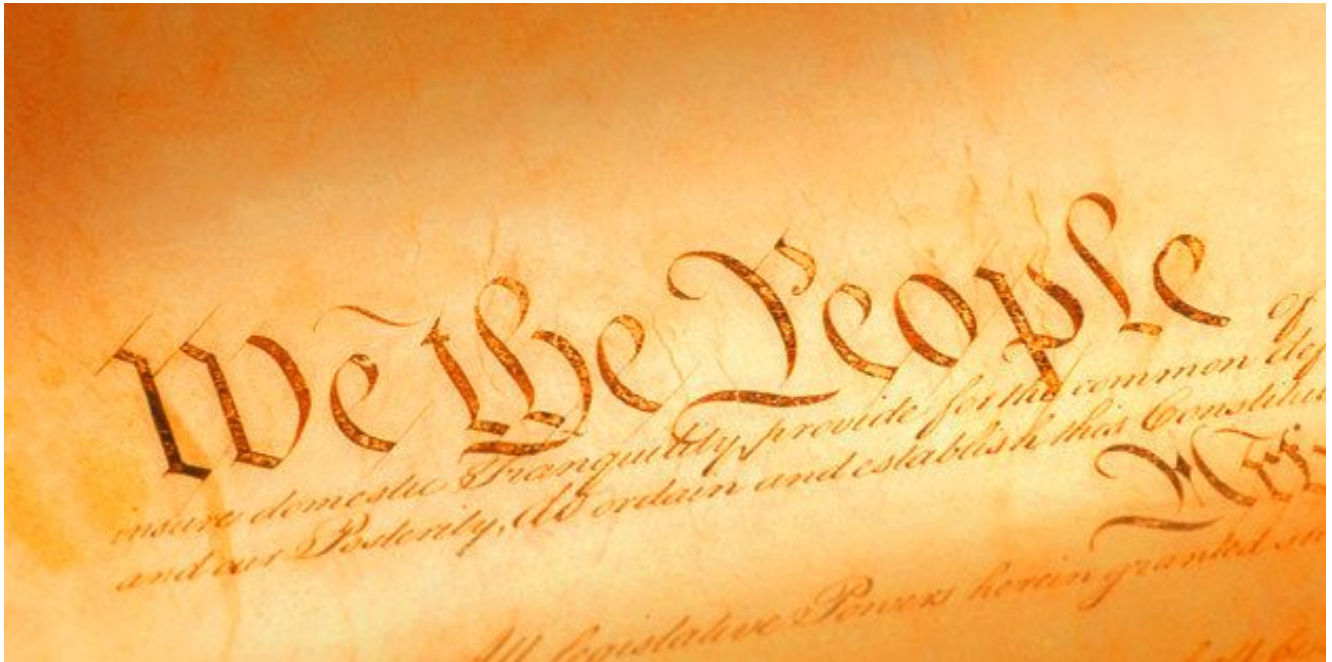 We the People of
insure domestic Tranquility, provide for the common def
and our Posterity, do ordain and establish this Constitu
All legislative Powers herein granted